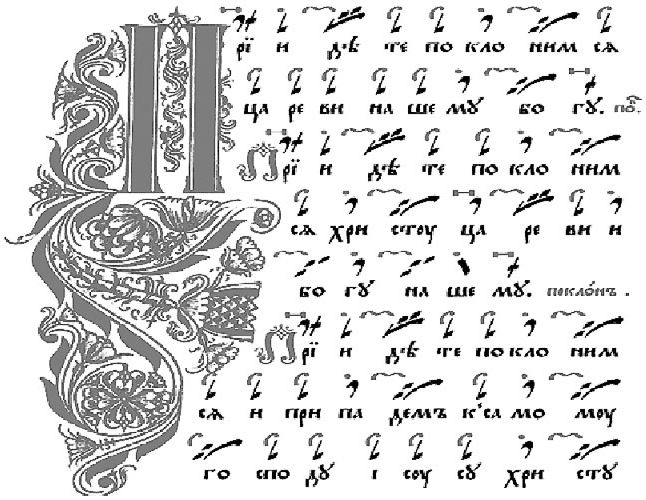 Прїи дѣ те по кло ним ся
ца ре ви на ше му бо гу. по̑.
Прїи дѣ те по кло ним
ся хри стоу ца ре ви и
бо гу на ше му. покло́нъ .
Прї и дѣ те по кло ним
ся и при па демъ к'са мо моу
го спо ду і соу су хри сту